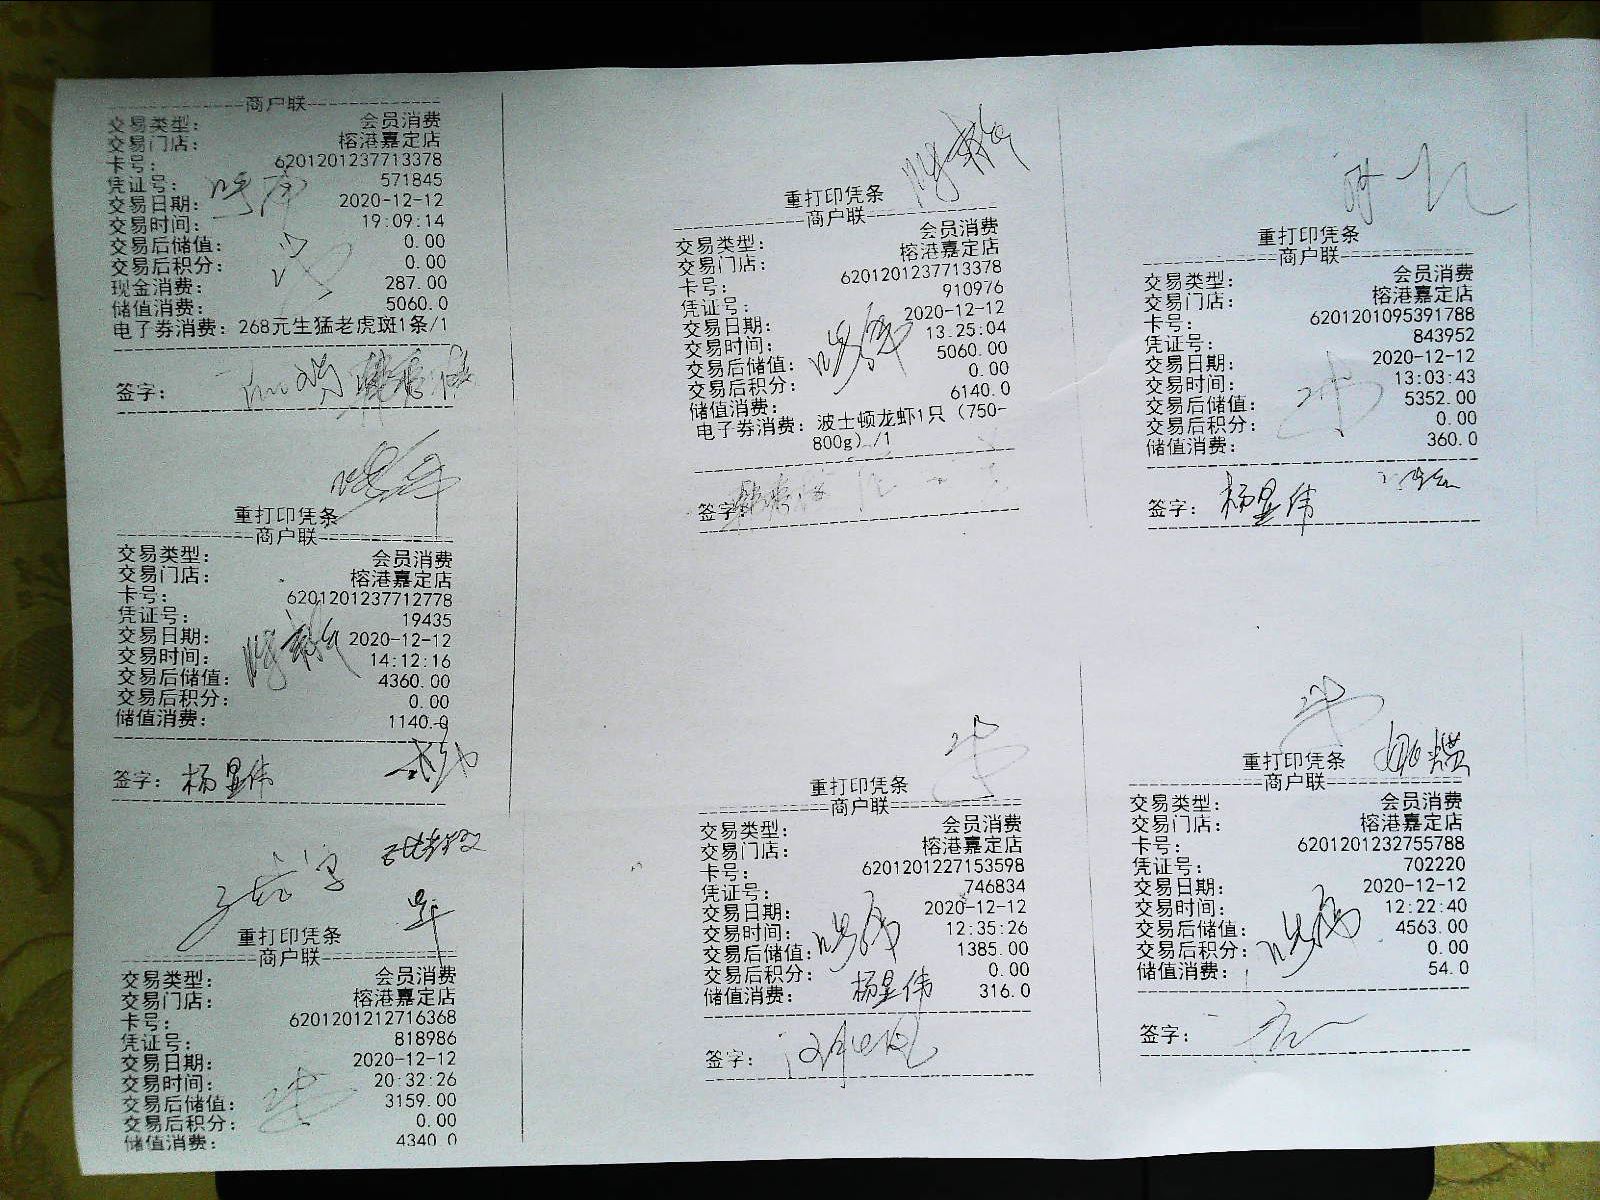 商户联
交易类型： 会员消费
交易门店： 榕港嘉定店
卡号： 6201201237713378
凭证号： 571845
交易日期： 2020-12-12
交易时间： 19:09:14
交易后储值： 0.00
交易后积分： 0.00
现金消费： 287.00
储值消费： 5060.0
电子券消费：268元生猛老虎斑1条/1
签字：
重打印凭条
商户联
交易类型： 会员消费
交易门店： 榕港嘉定店
卡号： 6201201237712778
凭证号： 19435
交易日期： 2020-12-12
交易时间： 14:12:16
交易后储值： 4360.00
交易后积分： 0.00
储值消费： 1140.0
签字： 杨显伟
重打印凭条
商户联
交易类型： 会员消费
交易门店： 榕港嘉定店
卡号： 6201201212716368
凭证号： 818986
交易日期： 2020-12-12
交易时间： 20:32:26
交易后储值： 3159.00
交易后积分： 0.00
储值消费： 4340.0
重打印凭条
商户联
交易类型： 会员消费
交易门店： 榕港嘉定店
卡号： 6201201237713378
凭证号： 910976
交易日期： 2020-12-12
交易时间： 13:25:04
交易后储值： 5060.00
交易后积分： 0.00
储值消费： 6140.0
电子券消费：波士顿龙虾1只（750-
800g）/1
签字：
重打印凭条
商户联
交易类型： 会员消费
交易门店： 榕港嘉定店
卡号： 6201201227153598
凭证号： 746834
交易日期： 2020-12-12
交易时间： 12:35:26
交易后储值： 1385.00
交易后积分： 0.00
储值消费： 杨显伟 316.0
签字：
重打印凭条
商户联
交易类型： 会员消费
交易门店： 榕港嘉定店
卡号： 6201201095391788
凭证号： 843952
交易日期： 2020-12-12
交易时间： 13:03:43
交易后储值： 5352.00
交易后积分： 0.00
储值消费： 360.0
签字： 杨显伟
重打印凭条
商户联
交易类型： 会员消费
交易门店： 榕港嘉定店
卡号： 6201201232755788
凭证号： 702220
交易日期： 2020-12-12
交易时间： 12:22:40
交易后储值： 4563.00
交易后积分： 0.00
储值消费： 54.0
签字：